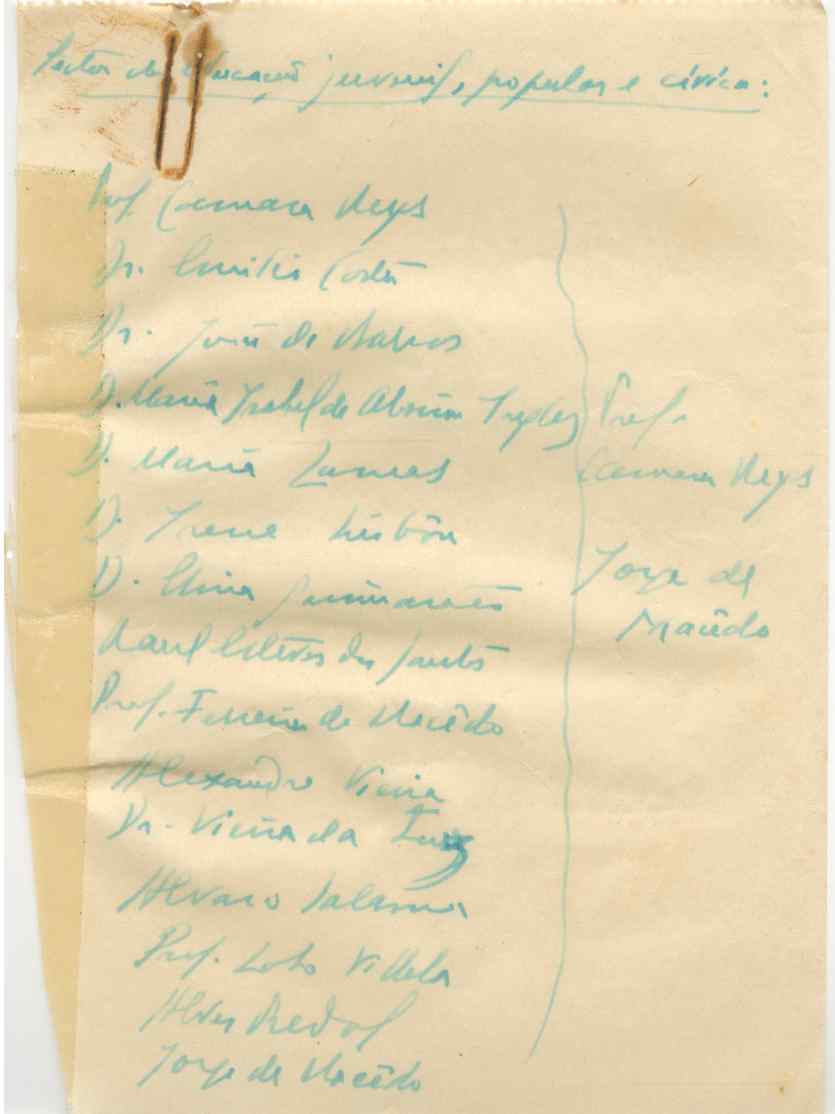 Sector de educação juvenil, popular e cívica:
Prof. Camara Reys
Dr. Emilio Costa
Dr. João de Barros
D. Maria Isabel de Aboim
D. Maria Lamas
D. Irene Lisbôa
D. Elina Guimarães
Raul Esteves dos Santos
Prof. Ferreira de Macêdo
Alexandre Vieira
Dr. Vieira da Luz
Alvaro Salema
Prof. Lobo Villela
Alves Redol
Jorge de Macêdo
Prof.
Camara Reys
Jorge de
Macêdo